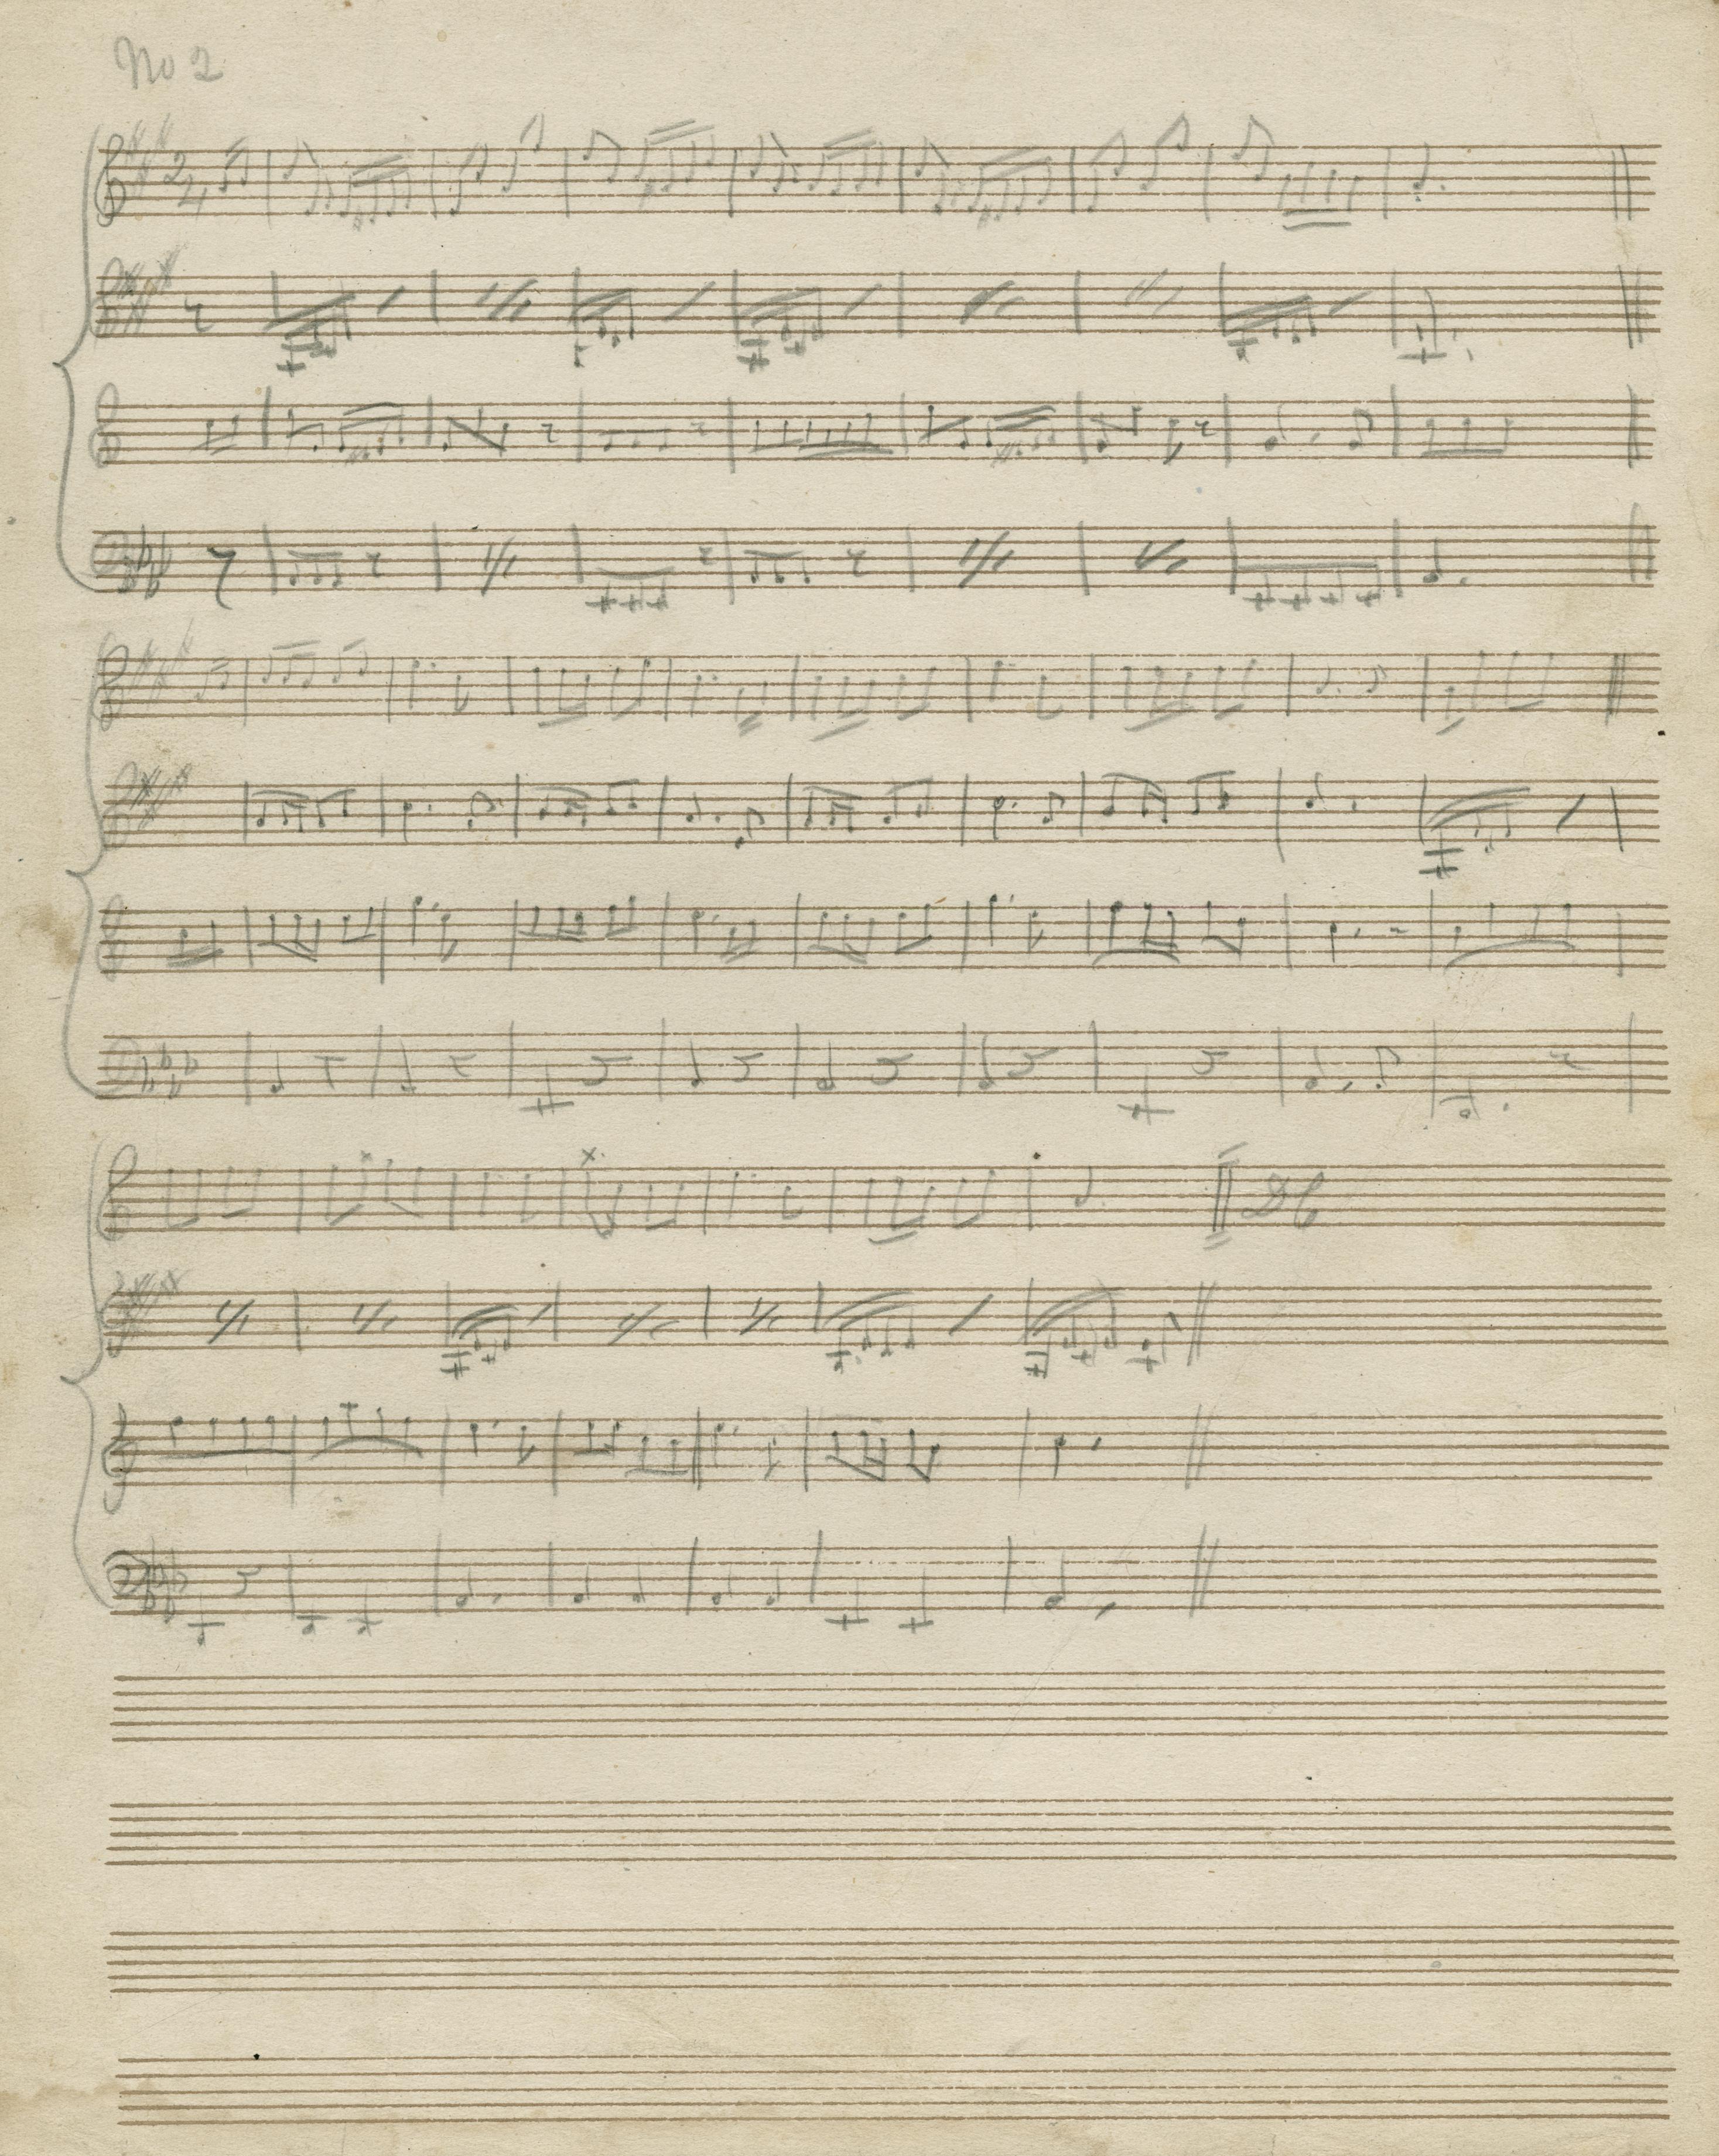 No 2
2/4
DC